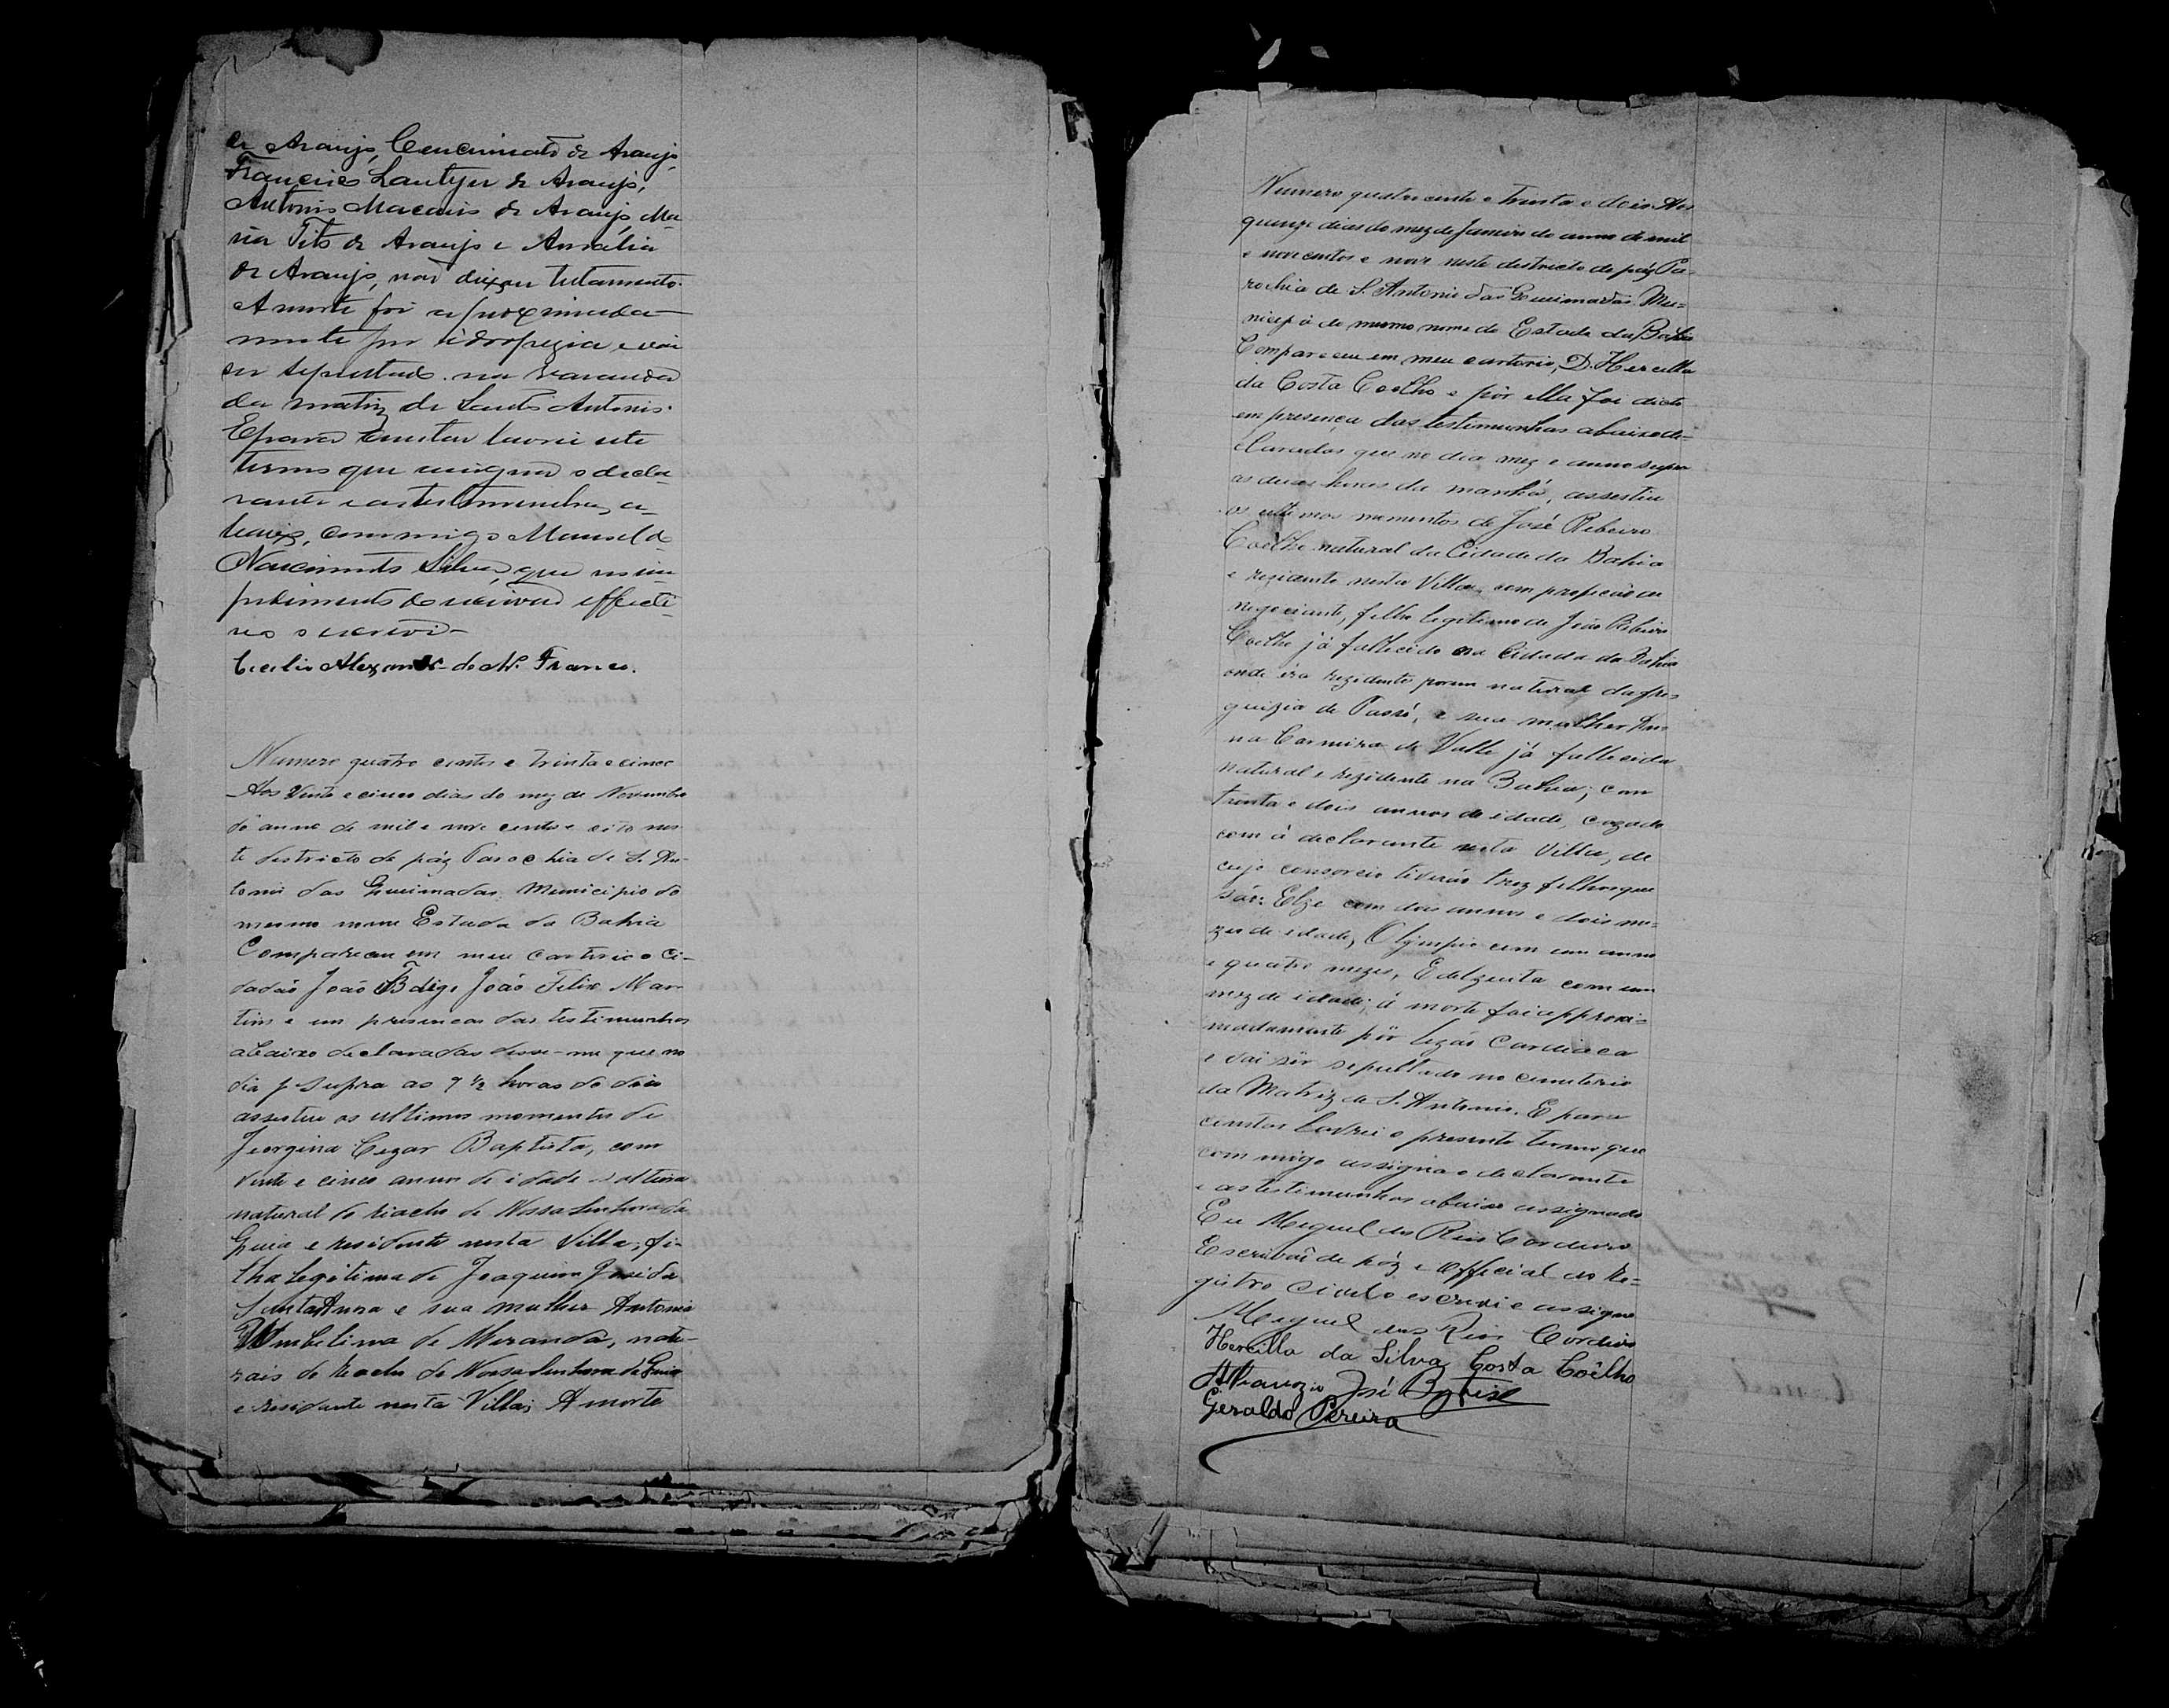 de Araujo, Cencinato de Araujo,
Francisco Lautyer de Araujo,
Antonio Macario de Araujo, Ma-
ria Tito de Araujo e Amalia
de Araujo, não deixou testamento.
A morte foi aproximada-
mente por idropezia e vai
ser sepultado na varanda
da matriz de Santo Antonio.
E para constar lavrei este
termo que assignão o decla-
rante e as testemunhas a-
baixo, commigo Manoel do
Nascimento Silva, que no im-
pedimento do escrivão effecti-
vo o escrevi-
Cecilio Alexandre do N. Franco.
Numero quatro centos e trinta e cinco
Aos Vinte e cinco dias do mez de Novembro
do anno de mil e nove centos e oito nes-
te destricto de páz Parochia de S. An-
tonio das Queimadas. Municipio do
mesmo nome Estado da Bahia
Compareceu em meu cartorio o Ci-
dadão João B digo João Felix Mar-
tins e em presença das testimunhas
abaixo declaradas disse-me que no
dia supra as 9 1/2 horas do dia
assestiu os ultimos momentos de
Jeorgina Cezar Baptista, com
vinte e cinco annos de idade solteira
natural do Riacho de Nossa Senhora da
Guia e residente nesta Villa, fi-
lha legitima de Joaquim José de
Santa Anna e sua mulher Antonia
Umbelina de Miranda, natu-
rais do Riacho de Nossa Senhora da Guia
e residente nesta Villa; A morte
Numero quatro cento e trinta e dois Aos
quinze dias do mez de Janeiro do anno de mil
e nove centos e nove neste destricto de páz Pa-
rochia de S. Antonio das Queimadas. Mu-
nicipio do mesmo nome do Estado da Bahia
Compareceu em meu cartorio, D. Hercilla
da Costa Coelho e por ella foi dicto
em presença das testimunhas abaixo de-
claradas que no dia mez e anno supra
as duas horas da manhã, assestiu
os ultimos momentos de José Ribeiro
Coelho natural da Cidade da Bahia
e rezidente nesta Villa, com profição de
negociante, filho legitimo de João Ribeiro
Coelho já fallecido na Cidade da Bahia
onde éra rezidente porem natural da fre-
guizia de Passé, e sua mulher An-
na Carneiro do Valle já fallecida
natural e rezidente na Bahia; com
trinta e dois annos de idade, cazado
com á declarante nesta Villa, de
cujo consorcio tiverão trez filhos que
são: Elze com dois annos e dois me-
zes de idade, Olympio com um anno
e quatro mezes, Edelzuita com um
mez de idade; á morte foi approxi-
madamente pôr lezão Cardiaca
e vai sêr sepultado no cemiterio
da Matriz de S. Antonio. E para
constar lavrei o presente termo que
com migo assigna o declarante
e as testimunhas abaixo assignado
Eu Miguel dos Reis Cordeiro
Escrivão de páz e Official do Re-
gistro Civil o escrevi e assigno
Miguel dos Reis Cordeiro
Hercilla da Silva Costa Coêlho
José
Geraldo Pereira